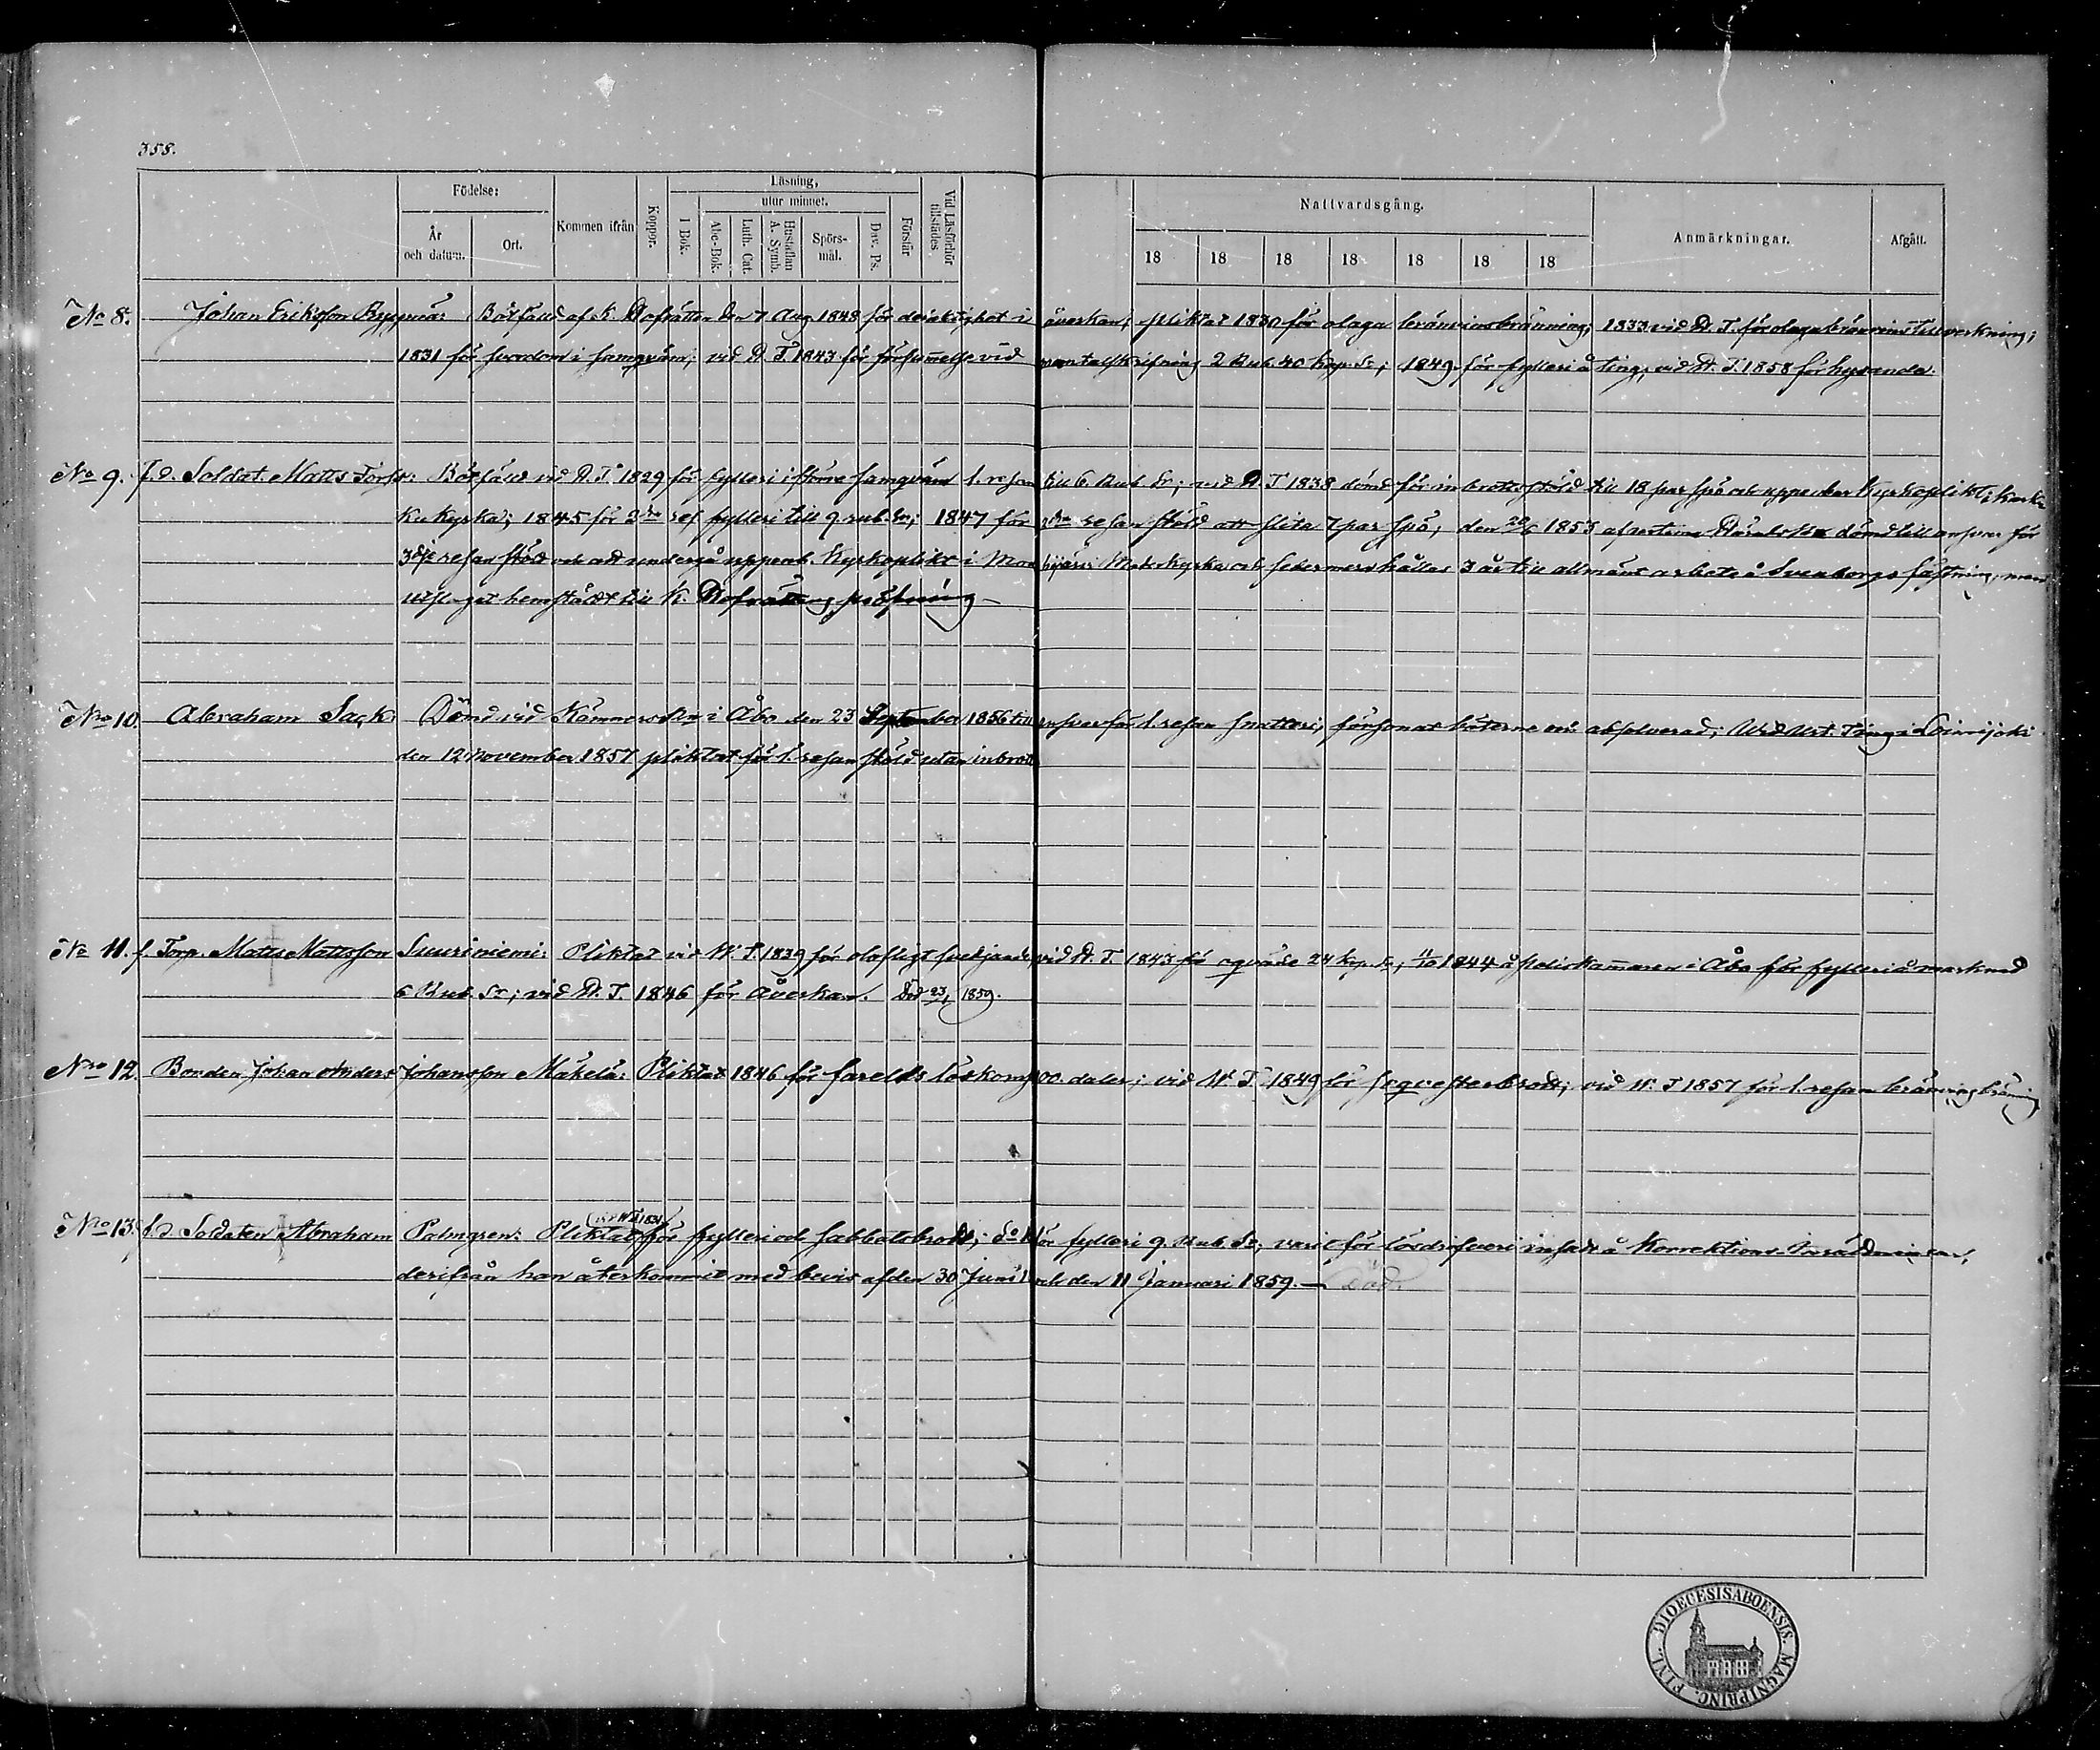 358.
Födelse:
Läsning,
utur minnet.
Nattvardsgång.
Anmärkningar.
Afgått.
År och datum.
Ort.
Kommen ifrån
Koppor.
I Bok.
Abc-Bok.
Luth. Cat.
Hustaflan A. Symb.
Spörsmål.
Dav. Ps.
Förstår
Vid Läsförhör tillstädes
18 18 18 18 18 18 18
No 8. Johan Eriksson Bötfäld af K. Hofrätten den 7 Aug. 1848 för delaktighet i åverkan; pliktat 1830 för olaga bränvinsbränning; 1833 vid H. T. för olaga bränvins tillverkning;
1831 för svordom i samqväm; vid H. T. 1843 för försummelse vid mantalsskrifning 2 Rub. 40 kop. Sr; 1849 för fylleri å ting; vid H. T. 1858 för
No 9. f. d. Soldat. Matts Bötfäld vid H. T. 1829 för fylleri i större samqväm 1. resan till 6 Rub Sr; vid H. T 1838 dömd för inbrotts stöld till 18 par spö och uppenbar Kyrkoplikt i
Kyrka; 1845 för 2dra res fylleri till 9 rub. Sr; 1847 för 2dra resan stöld att slita 7 par spö; den 20/6 1853 af dömd till ansvar för
3dje resan stöld och att undergå uppenb. Kyrkoplikt i Moderkyrka och sedermera hållas 3 år till allmänt arbete å Sveaborgs fästning, men
utslaget hemstäldt till K. Hofrättens pröfning
Nro 10. Abraham Sack: Dömd vid Kämnersrätten i Åbo den 23 September 1856 till ansvar för 1. resan snatteri; försonat böterne och absolverad; Vid Urt. Ting i Loimijoki
den 12 November 1857 pliktat för 1. resan stöld utan inbrott
No 11. f. Torp. Matts Mattsson Suuriniemi: Pliktat vid W. T. 1839 för olofligt svedjande, vid H. T. 1843 för oqväde 24 kop. Sr, 11/10 1844 å poliskammaren i Åbo för fylleri å marknad
6 Rub. Sr; vid H. T. 1846 för Åverkan. Död 23/1 1859.
Nro 12. Bonden Johan Anders Johansson Mäkelä: Pliktat 1846 för farelds 100. daler; vid W. T. 1849 för sqvesterbrott; vid W. T 1857 för 1. resan bränvinsbränning
Nro 13. f. d. Soldaten Abraham Palmgren: Pliktat för fylleri och sabbatsbrott; för fylleri 9 Rub. Sr; varit för lösdrifveri insatt å Korrektions Inrättningen,
derifrån han återkommit med bevis af den 30 Juni och den 11 Januari 1859. — Död.
DIOECESIS ABOENSIS. MAGNI PRINC. FINL.